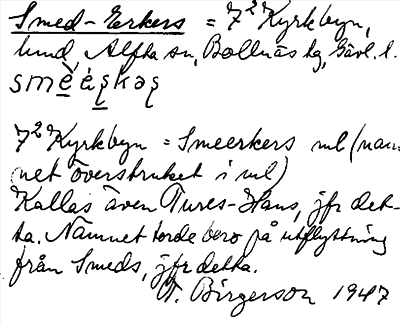 Smed-Erkers = 7² Kyrkbyn,
lund, Alfta sn, Bollnäs tg, Gävl. l.
7² Kyrkbyn = Smeerkers ml (nam-
net överstruket i ml)
Kallas även Tures-Hans, jfr det-
ta. Namnet torde bero på utflyttning
från Smeds, jfr detta.
T. Birgerson 1947